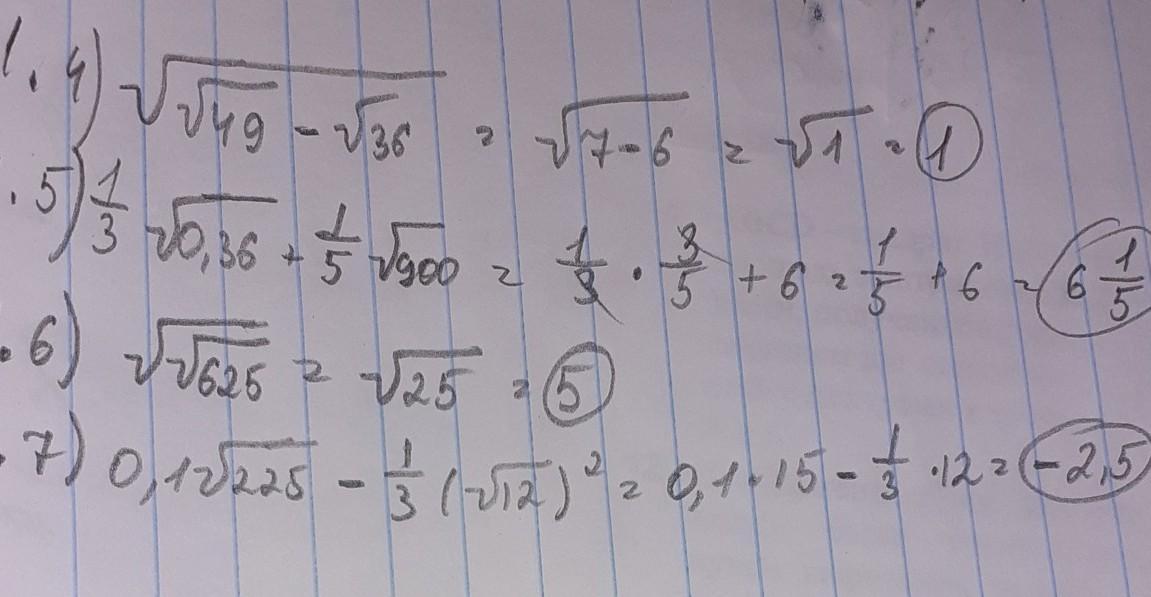 1.4) √(√49 - √36) = √(7-6) = √1 = 1
.5) 1/3 √0,36 + 1/5 √900 = 1/3 · 3/5 + 6 = 1/5 + 6 = 6 1/5
.6) √√625 = √25 = 5
.7) 0,1√225 - 1/3 (√12)² = 0,1·15 - 1/3 ·12 = -2,5